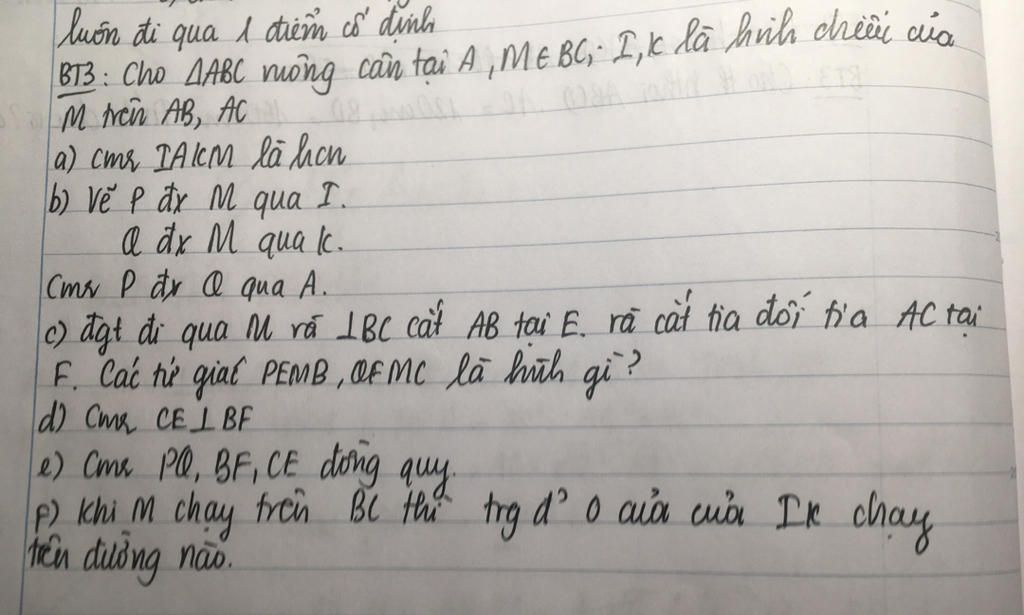 luôn đi qua 1 điểm cố định
BT3: Cho ΔABC vuông cân tại A, M∈BC; I, K là hình chiếu của
M trên AB, AC
a) cmr IAKM là hcn
b) Vẽ P đx M qua I.
Q đx M qua K.
Cmr P đx Q qua A.
c) đgt đi qua M và ⊥BC cắt AB tại E. và cắt tia đối tia AC tại
F. Các tứ giác PEMB, QFMC là hình gì?
d) Cmr CE⊥BF
e) Cmr PQ, BF, CE đồng quy.
f) Khi M chạy trên BC thì trg đ' O của của IK chạy
trên đường nào.